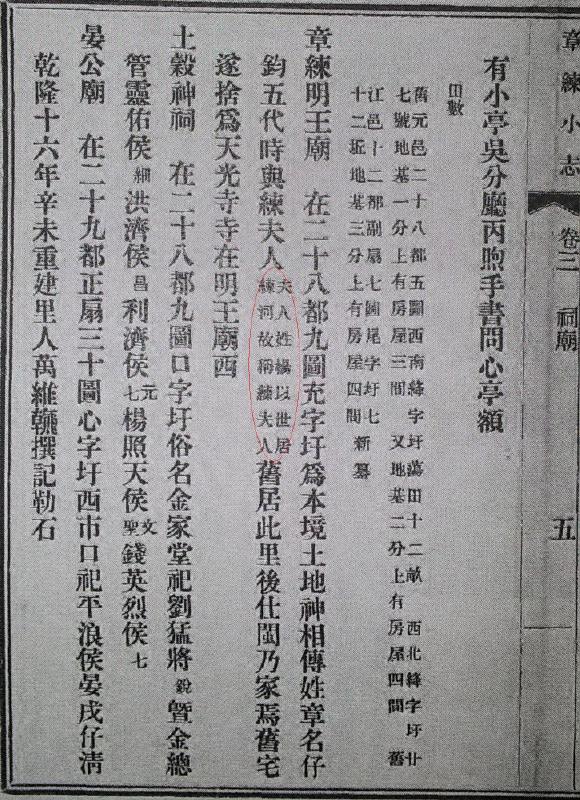 章練小志 卷三 祠廟 五
有小亭吳分廳丙煦手書問心亭額
田數
舊元邑二十八都五圖西南絳字圩蕩田十二畝 西北絳字圩廿
七號地基一分上有房屋三間 又地基二分上有房屋四間 舊
江邑十二都副扇七圖尾字圩七
十二坵地基三分上有房屋四間 新纂
章練明王廟 在二十八都九圖充字圩爲本境土地神相傳姓章名仔
鈞五代時與練夫人夫人姓楊以世居練河故稱練夫人舊居此里後仕閩乃家焉舊宅
遂捨爲天光寺寺在明王廟西
土穀神祠 在二十八都九圖口字圩俗名金家堂祀劉猛將銳曁金總
管靈佑侯細洪濟侯昌利濟侯元七楊照天侯文聖錢英烈侯七
晏公廟 在二十九都正扇三十圖心字圩西市口祀平浪侯晏戌仔清
乾隆十六年辛未重建里人萬維翰撰記勒石